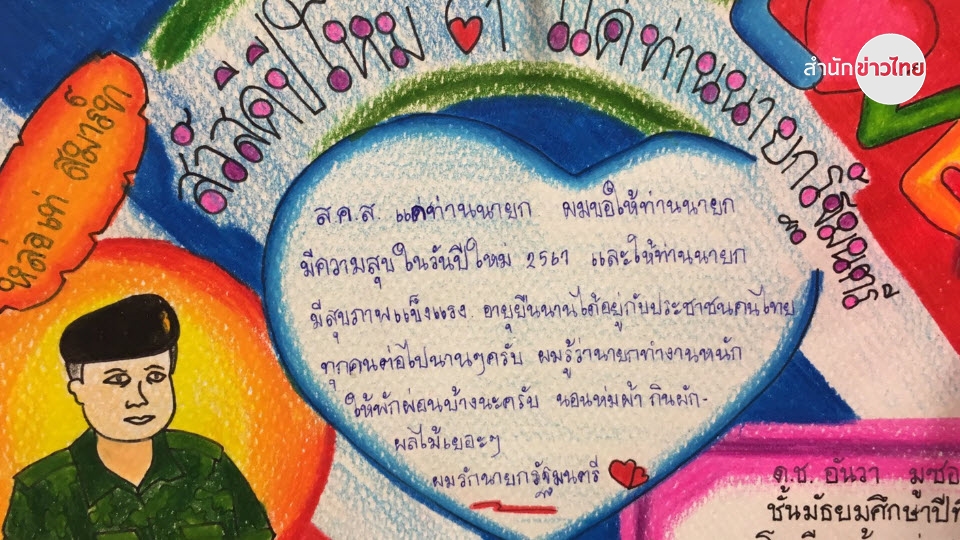 สำนักข่าวไทย
สวัสดีปีใหม่ แด่ท่านนายกรัฐมนตรี
หล่อเท่ สมาร์ท
ส.ค.ส. แด่ท่านนายก ผมขอให้ท่านนายก
มีความสุขในวันปีใหม่ 2561 และให้ท่านนายก
มีสุขภาพแข็งแรง อายุยืนนานได้อยู่กับประชาชนคนไทย
ทุกคนต่อไปนานๆครับ ผมรู้ว่านายกทำงานหนัก
ให้พักผ่อนบ้างนะครับ นอนห่มผ้า กินผัก-
ผลไม้เยอะๆ
ผมรักนายกรัฐมนตรี
ด.ช. อันวา มูซอ
ชั้นมัธยมศึกษาปีที่